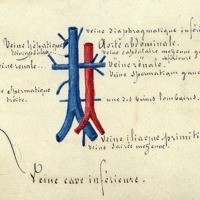 veine diaphragmatique infér
Veine hépatique
Aorte abdominale.
veine capsulaire moyenne
inférieure
eine rénale...
Veine rénale.
Veine spermatique gauc
e spermatique
droite.
une des veines lombaires.
Veine iliaque primiti
Veine sacrée moyenne.
Veine cave inférieure.